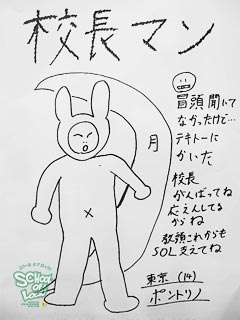 校長マン
冒頭聞いて
なかったけど…
テキトーに
かいた
月
校長
がんばってね
応えんしてる
からね
教頭これからも
SOL支えてね
東京 (14)
ポントリノ
SCHOOL OF LOCK!